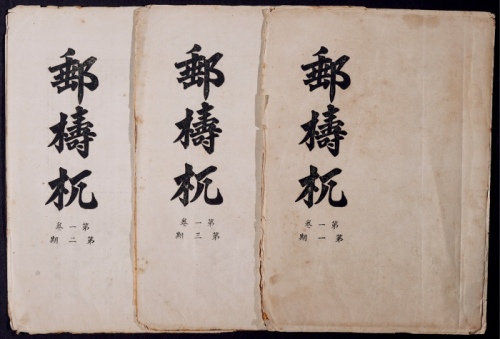 郵檮杌
第一卷
第二期
郵檮杌
第一卷
第三期
郵檮杌
第一卷
第一期